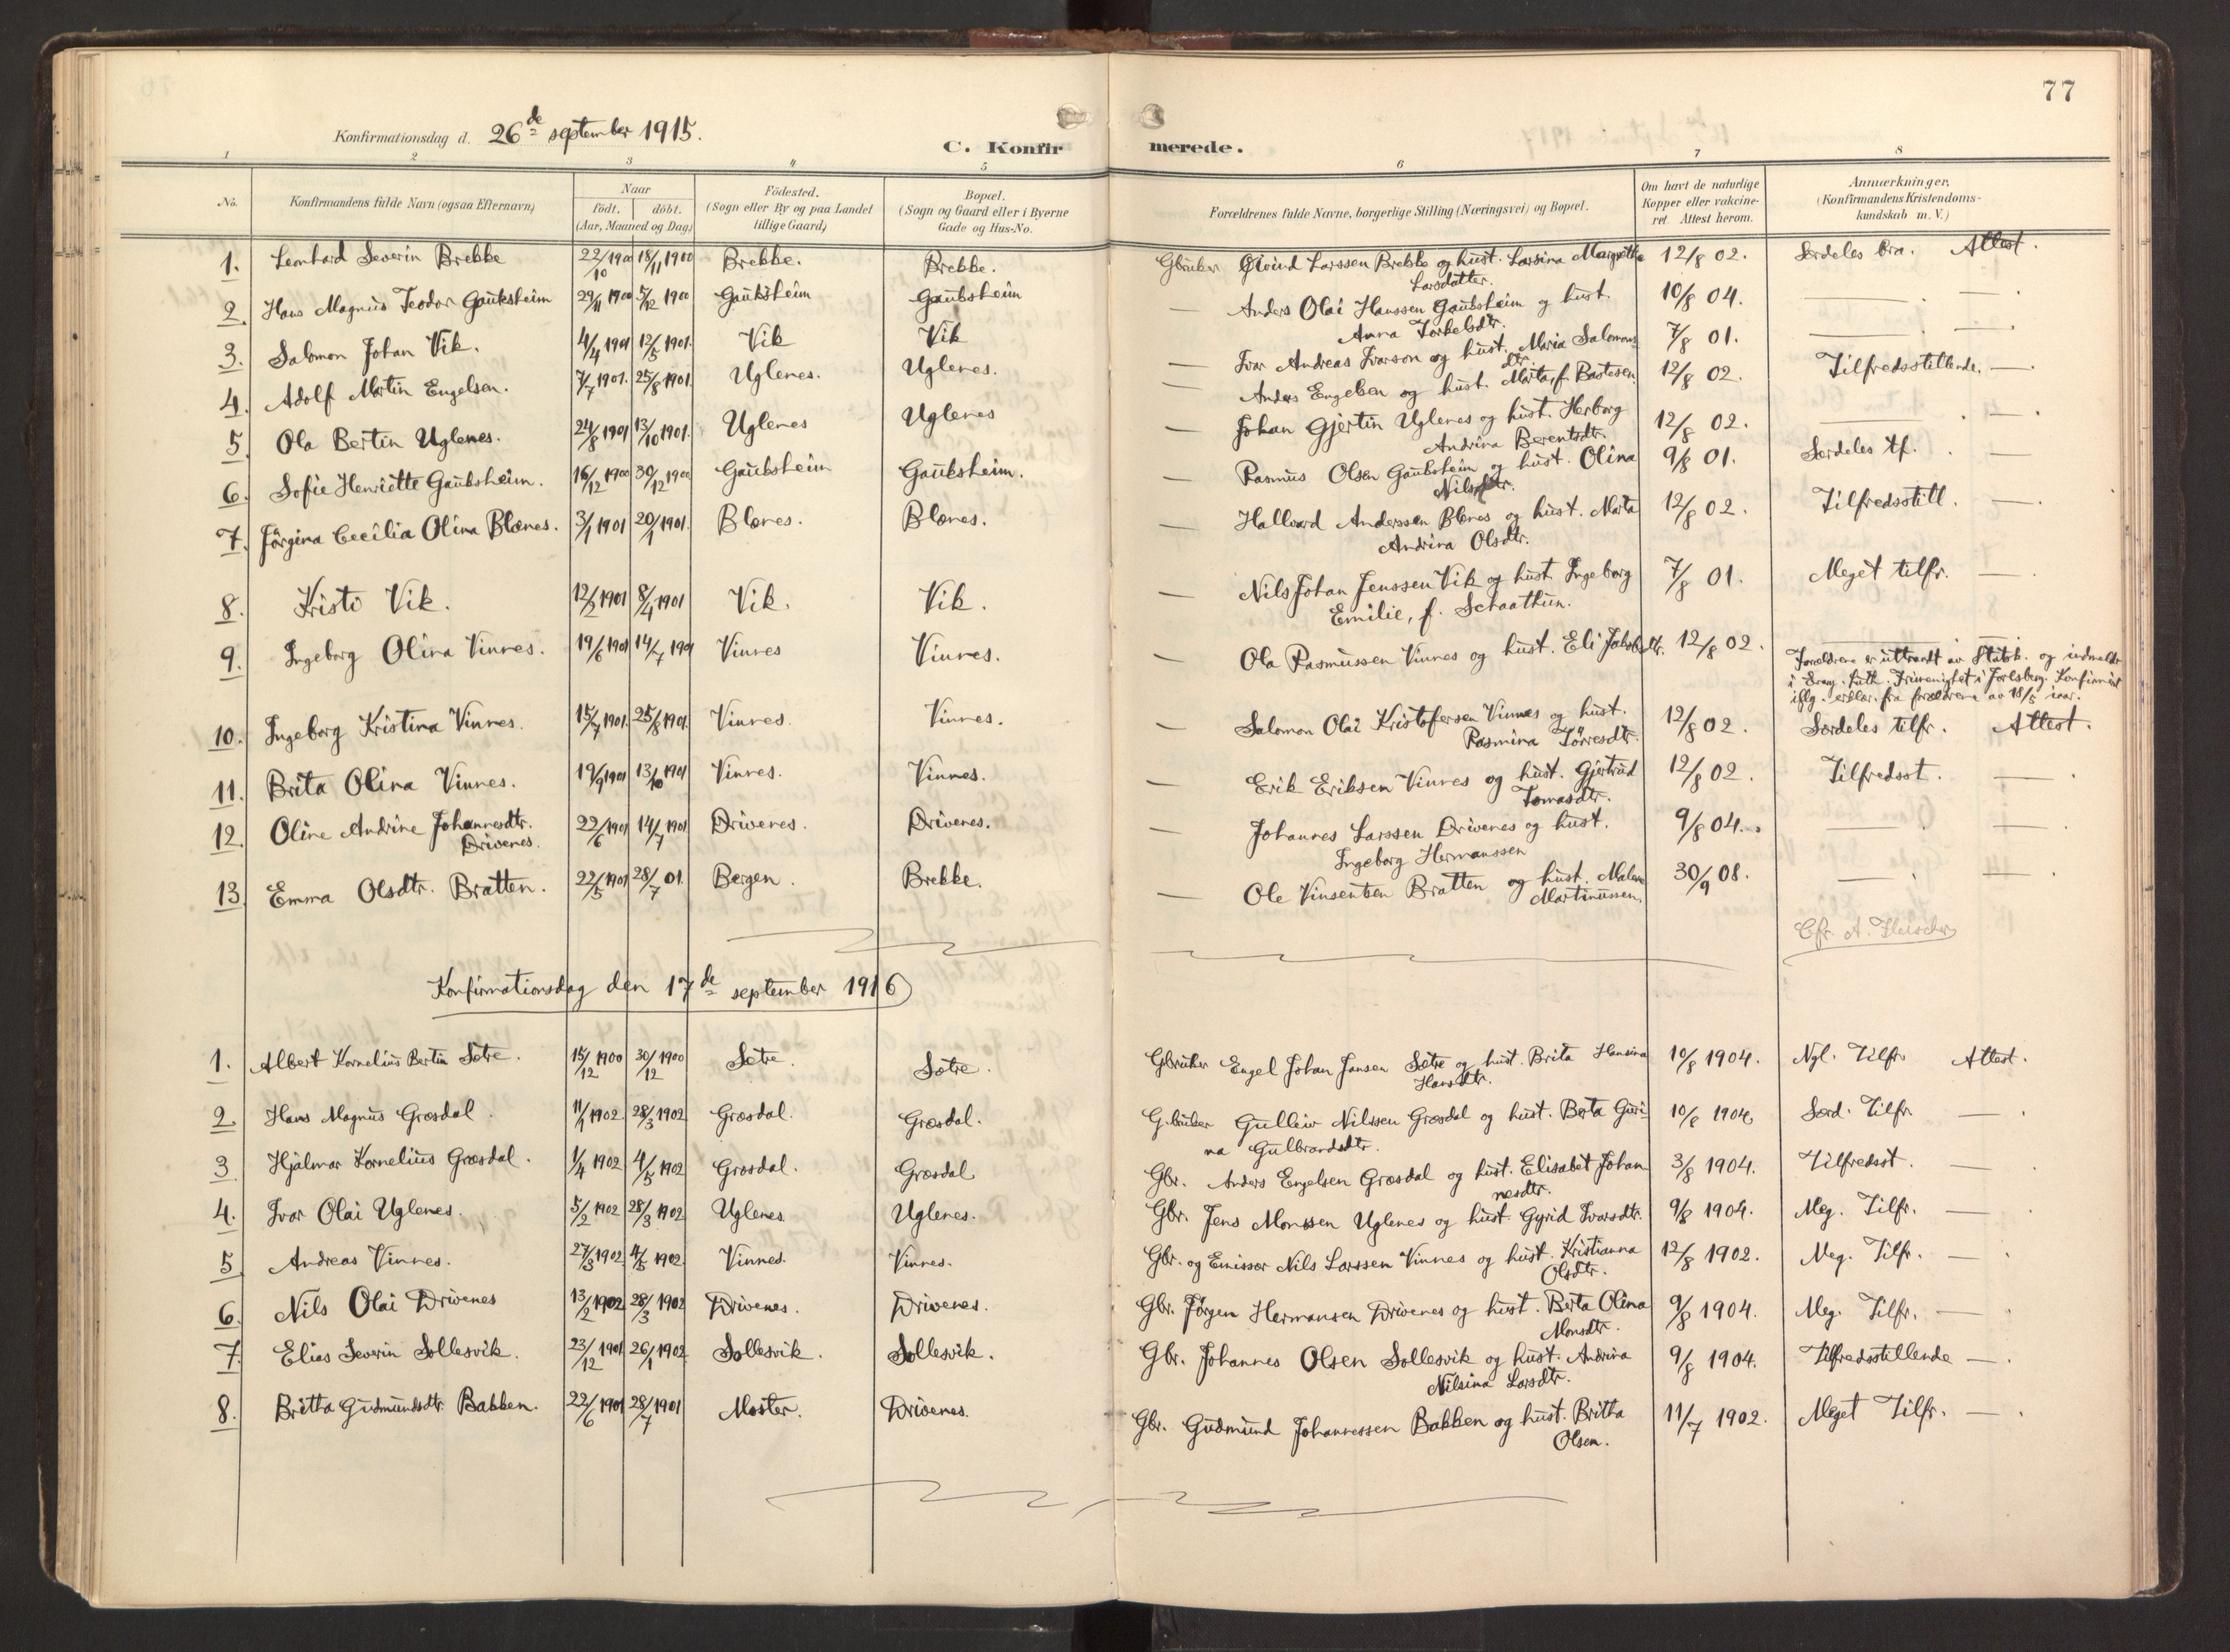 77
Konfirmationsdag d. 26de september 1915.
C. Konfirmerede.
1 2 3 4 5 6 7 8
No. Konfirmandens fulde Navn (ogsaa Efternavn) Naar født. døbt. (Aar, Maaned og Dag) Födested. (Sogn eller By og paa Landet tillige Gaard) Bopæl. (Sogn og Gaard eller i Byerne Gade og Hus-No. Forældrenes fulde Navne, borgerlige Stilling (Næringsvei) og Bopæl. Om havt de naturlige Kopper eller vakcineret. Attest herom. Anmærkninger. (Konfirmandens Kristendomskundskab m. V.)
1. Leonhard Severin Brekke 22/10 1900 18/11 1900 Brekke. Brekke. Gbruker Øivind Larssen Brekke og hust. Larsina Margrethe 12/8 02. Særdeles bra. Attest.
Larsdatter.
2. Hans Magnus Teodor Gauksheim 29/11 1900 5/12 1900 Gauksheim Gauksheim — Anders Olai Hanssen Gauksheim og hust. 10/8 04. — . — .
Anna Torkelsdtr.
3. Salomon Johan Vik. 4/4 1901 12/5 1901. Vik Vik — Ivar Andreas Ivarson og hust. Maria Salomons 7/8 01. — . — .
dtr.
4. Adolf Martin Engelsen. 7/7 1901. 25/8 1901. Uglenes. Uglenes. — Anders Engelsen og hust. Marta, f. Bastesen 12/8 02. Tilfredsstillende. — .
5. Ola Bertin Uglenes. 24/8 1901 13/10 1901. Uglenes Uglenes — Johan Gjertin Uglenes og hust. Herborg 12/8 02. — . — .
Andrina Berentsdtr.
6. Sofie Henriette Gauksheim. 16/12 1900 30/12 1900 Gauksheim Gauksheim. — Rasmus Olsen Gauksheim og hust. Olina 9/8 01. Særdeles tf. . —
Nilsdtr.
7. Jörgina Cecilia Olina Blænes. 3/1 1901 20/1 1901. Blænes. Blænes. — Hallvard Anderssen Blænes og hust. Marta 12/8 02. Tilfredsstill. — .
Andrina Olsdtr.
8. Kristi Vik. 12/2 1901 8/4 1901 Vik. Vik. — Nils Johan Jenssen Vik og hust. Ingeborg 7/8 01. Meget tilfr. — .
Emilie, f. Schaathun.
9. Ingeborg Olina Vinnes. 19/6 1901 14/7 1901 Vinnes Vinnes. — Ola Rasmussen Vinnes og hust. Eli Jakobsdtr. 12/8 02. — — .
Forældrene er uttraadt av Statsk. og indmeldt
i Evang. Luth. Frimenighet i Jarlsberg. Konfirmert
iflg. erklær. fra forældrene av 18/5 iaar.
10. Ingeborg Kristina Vinnes. 15/7 1901. 25/8 1901. Vinnes. Vinnes. — Salomon Olai Kristofersen Vinnes og hust. 12/8 02. Særdeles tilfr. Attest.
Rasmina Tørresdtr.
11. Brita Olina Vinnes. 19/9 1901 13/10 1901 Vinnes. Vinnes. — Erik Eriksen Vinnes og hust. Gjertrud 12/8 02. Tilfredsst. — .
Tomasdtr.
12. Oline Andrine Johannesdtr. 22/6 1901 14/7 1901 Drivenes. Drivenes. — Johannes Larssen Drivenes og hust. 9/8 04. — . — .
Drivenes.
Ingeborg Hermanssen
13. Emma Olsdtr. Bratten. 22/5 1901 28/7 01. Bergen. Brekke. — Ole Vinsentsen Bratten og hust. Malene 30/9 08. — . — .
Martinussen.
Cfr. A. Fleischer
Konfirmationsdag den 17de september 1916
1. Albert Kornelius Bertin Sætre. 15/12 1900 30/12 1900 Sætre. Sætre. Gbruker Engel Johan Jansen Sætre og hust. Brita Hansina 10/8 1904. Ngl. Tilfr. Attest.
Hansdtr.
2. Hans Magnus Græsdal. 11/1 1902. 28/3 1902. Græsdal. Græsdal. G.bruker Gulleiv Nilssen Græsdal og hust. Berta Guri- 10/8 1904, Særd. Tilfr. — .
na Gulbrandsdtr.
3 Hjalmar Kornelius Græsdal. 1/4 1902 4/5 1902 Græsdal. Græsdal Gbr. Anders Engelsen Græsdal og hust. Elisabet Johan 3/8 1904. Tilfredsst. — .
nesdtr.
4. Ivar Olai Uglenes. 5/2 1902 28/3 1902 Uglenes Uglenes. Gbr. Jens Monssen Uglenes og hust. Gyrid Ivarsdtr. 9/8 1904. Meg. Tilfr. — .
5 Andreas Vinnes. 27/3 1902 4/5 1902. Vinnes. Vinnes. Gbr. og Emissær Nils Larssen Vinnes og hust. Kristianna 12/8 1902. Meg. Tilfr. — .
Olsdtr.
6. Nils Olai Drivenes 13/2 1902 28/3 1902 Drivenes. Drivenes. Gbr. Jørgen Hermansen Drivenes og hust. Berta Olina 9/8 1904. Meg. Tilfr. — .
Monsdtr.
7. Elias Severin Sollesvik. 23/12 1901 26/1 1902. Sollesvik. Sollesvik. Gbr. Johannes Olsen Sollesvik og hust. Andrina 9/8 1904. Tilfredsstillende — .
Nilsina Larsdtr.
8. Britta Gudmundsdtr. Bakken. 22/6 1901 28/7 1901 Moster. Drivenes. Gbr. Gudmund Johannessen Bakken og hust. Britta 11/7 1902. Meget Tilfr. — .
Olsen.